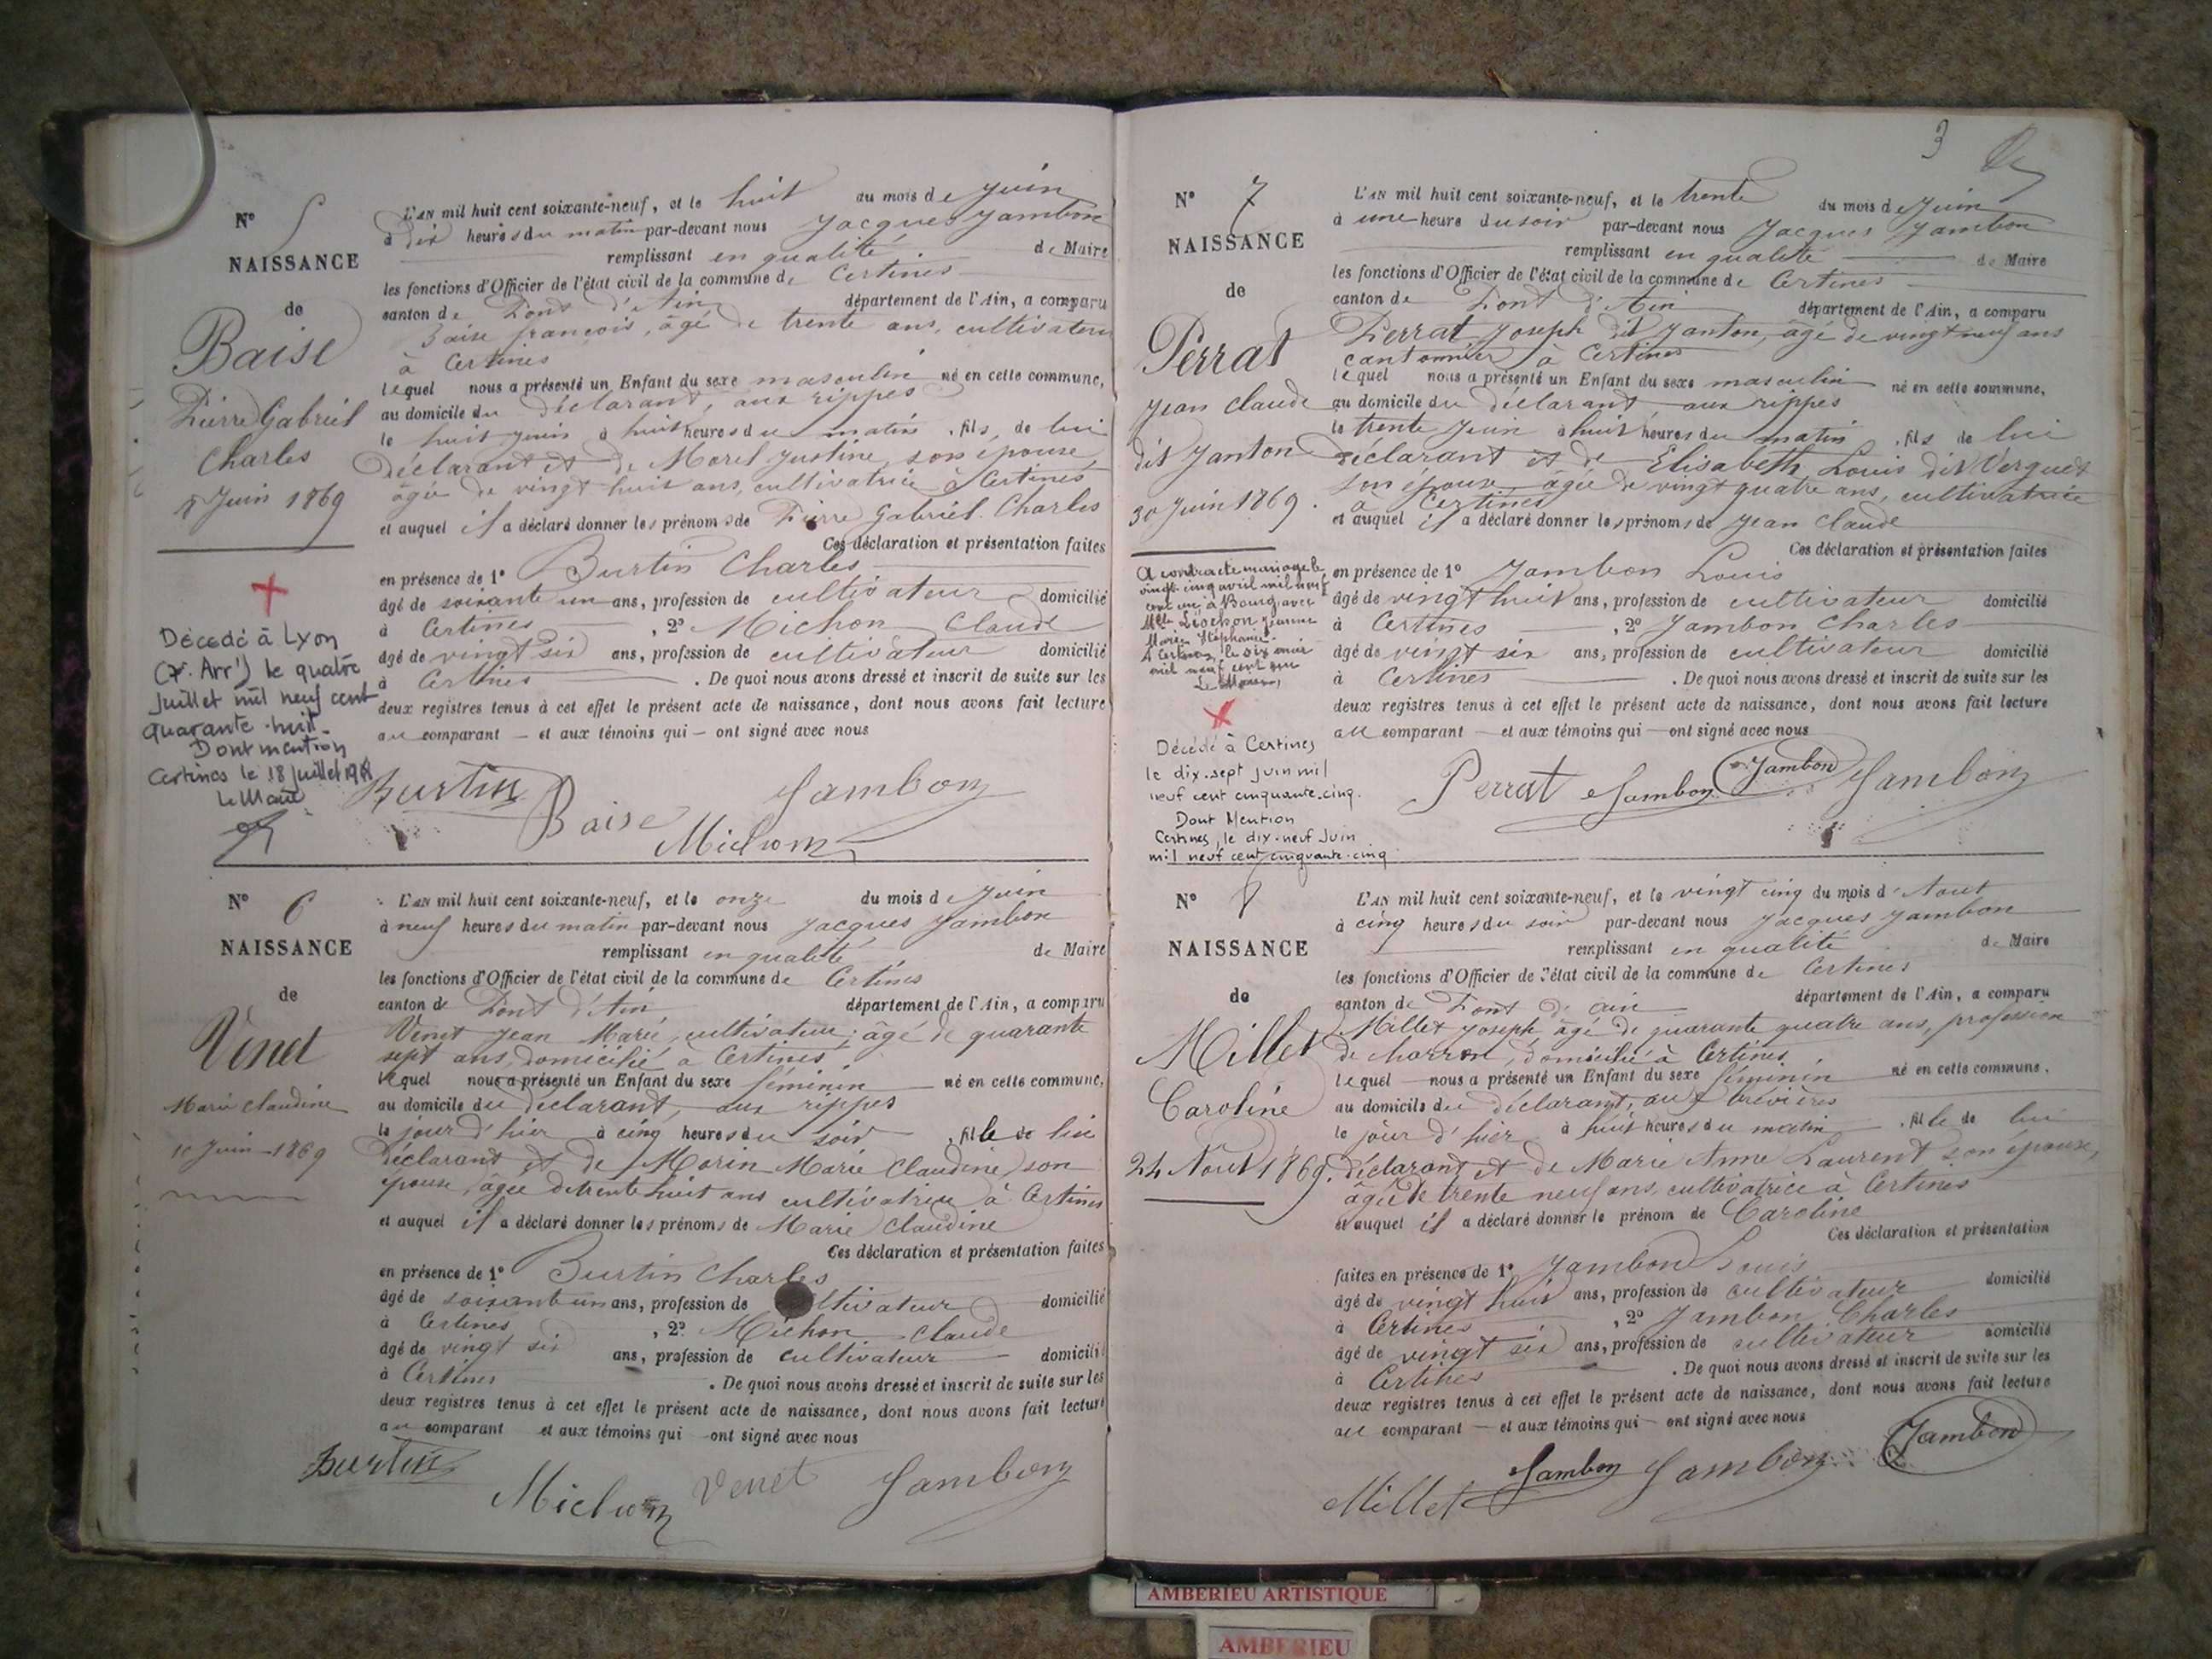 N° 5
NAISSANCE
de
Baise
Pierre Gabriel
Charles
8 Juin 1869
Décédé à Lyon
(7e Arrt) le quatre
Juillet mil neuf cent
quarante-huit.
Dont mention
Certines le 18 juillet 1948
Le Maire
L'AN mil huit cent soixante-neuf, et le huit du mois de Juin
à dix heures du matin par-devant nous Jacques Jambon
remplissant en qualité de Maire
les fonctions d'Officier de l'état civil de la commune de Certines
canton de Pont d'Ain département de l'Ain, a comparu
Baise françois, âgé de trente ans, cultivateur
à Certines
lequel nous a présenté un Enfant du sexe masculin né en cette commune,
au domicile du déclarant, aux rippes
le huit Juin à huit heures du matin, fils de lui
déclarant et de Morel Justine, son épouse,
âgée de vingt huit ans, cultivatrice à Certines
et auquel il a déclaré donner les prénoms de Pierre Gabriel Charles
Ces déclaration et présentation faites
en présence de 1° Burtin Charles
âgé de soixante un ans, profession de cultivateur domicilié
à Certines, 2° Michon Claude
âgé de vingt six ans, profession de cultivateur domicilié
à Certines. De quoi nous avons dressé et inscrit de suite sur les
deux registres tenus à cet effet le présent acte de naissance, dont nous avons fait lecture
au comparant — et aux témoins qui — ont signé avec nous
Burtin Baise Jambon
Michon
N° 6
NAISSANCE
de
Venet
Marie Claudine
10 Juin 1869
L'AN mil huit cent soixante-neuf, et le onze du mois de Juin
à neuf heures du matin par-devant nous Jacques Jambon
remplissant en qualité de Maire
les fonctions d'Officier de l'état civil de la commune de Certines
canton de Pont d'Ain département de l'Ain, a comparu
Venet Jean Marie, cultivateur, âgé de quarante
sept ans, domicilié à Certines
lequel nous a présenté un Enfant du sexe féminin né en cette commune,
au domicile du déclarant, aux rippes
le jour d'hier à cinq heures du soir, fille de lui
déclarant et de Morin Marie Claudine, son
épouse, âgée de trente huit ans cultivatrice à Certines
et auquel il a déclaré donner les prénoms de Marie Claudine
Ces déclaration et présentation faites
en présence de 1° Burtin Charles
âgé de soixante un ans, profession de cultivateur domicilié
à Certines, 2° Michon Claude
âgé de vingt six ans, profession de cultivateur domicilié
à Certines. De quoi nous avons dressé et inscrit de suite sur les
deux registres tenus à cet effet le présent acte de naissance, dont nous avons fait lecture
au comparant et aux témoins qui ont signé avec nous
Burtin Michon Venet Jambon
3
N° 7
NAISSANCE
de
Perrat
Jean Claude
dit Janton
30 Juin 1869.
A contracté mariage le
vingt-cinq avril mil neuf
cent un à Bourg avec
Mlle Liochon Jeanne
Marie Stéphanie.
A Certines, le six mai
mil neuf cent un
Le Maire,
Décédé à Certines
le dix-sept juin mil
neuf cent cinquante-cinq.
Dont Mention
Certines, le dix-neuf Juin
mil neuf cent cinquante-cinq
L'AN mil huit cent soixante-neuf, et le trente du mois de Juin
à une heure du soir par-devant nous Jacques Jambon
remplissant en qualité de Maire
les fonctions d'Officier de l'état civil de la commune de Certines
canton de Pont d'Ain département de l'Ain, a comparu
Perrat Joseph dit Janton, âgé de vingt neuf ans
cantonnier à Certines
lequel nous a présenté un Enfant du sexe masculin né en cette commune,
au domicile du déclarant aux rippes
le trente Juin à huit heures du matin, fils de lui
déclarant et de Elisabeth Louis dit Verguet
son épouse, âgée de vingt quatre ans, cultivatrice
à Certines
et auquel il a déclaré donner les prénoms de Jean Claude
Ces déclaration et présentation faites
en présence de 1° Jambon Louis
âgé de vingt huit ans, profession de cultivateur domicilié
à Certines, 2° Jambon Charles
âgé de vingt six ans, profession de cultivateur domicilié
à Certines. De quoi nous avons dressé et inscrit de suite sur les
deux registres tenus à cet effet le présent acte de naissance, dont nous avons fait lecture
au comparant — et aux témoins qui — ont signé avec nous
Perrat Jambon Jambon Jambon
N° 8
NAISSANCE
de
Millet
Caroline
24 Aout 1869.
L'AN mil huit cent soixante-neuf, et le vingt cinq du mois d'Aout
à cinq heures du soir par-devant nous Jacques Jambon
remplissant en qualité de Maire
les fonctions d'Officier de l'état civil de la commune de Certines
canton de Pont d'ain département de l'Ain, a comparu
Millet Joseph âgé de quarante quatre ans, profession
de charron, domicilié à Certines
lequel nous a présenté un Enfant du sexe féminin né en cette commune,
au domicile du déclarant, aux brevières
le jour d'hier à huit heures du matin, fille de lui
déclarant et de Marie Anne Laurent son épouse,
âgée de trente neuf ans, cultivatrice à Certines
et auquel il a déclaré donner le prénom de Caroline
Ces déclaration et présentation
faites en présence de 1° Jambon Louis
âgé de vingt huit ans, profession de cultivateur domicilié
à Certines, 2° Jambon Charles
âgé de vingt six ans, profession de cultivateur domicilié
à Certines. De quoi nous avons dressé et inscrit de suite sur les
deux registres tenus à cet effet le présent acte de naissance, dont nous avons fait lecture
au comparant — et aux témoins qui — ont signé avec nous
Millet Jambon Jambon Jambon
AMBERIEU ARTISTIQUE
AMBERIEU